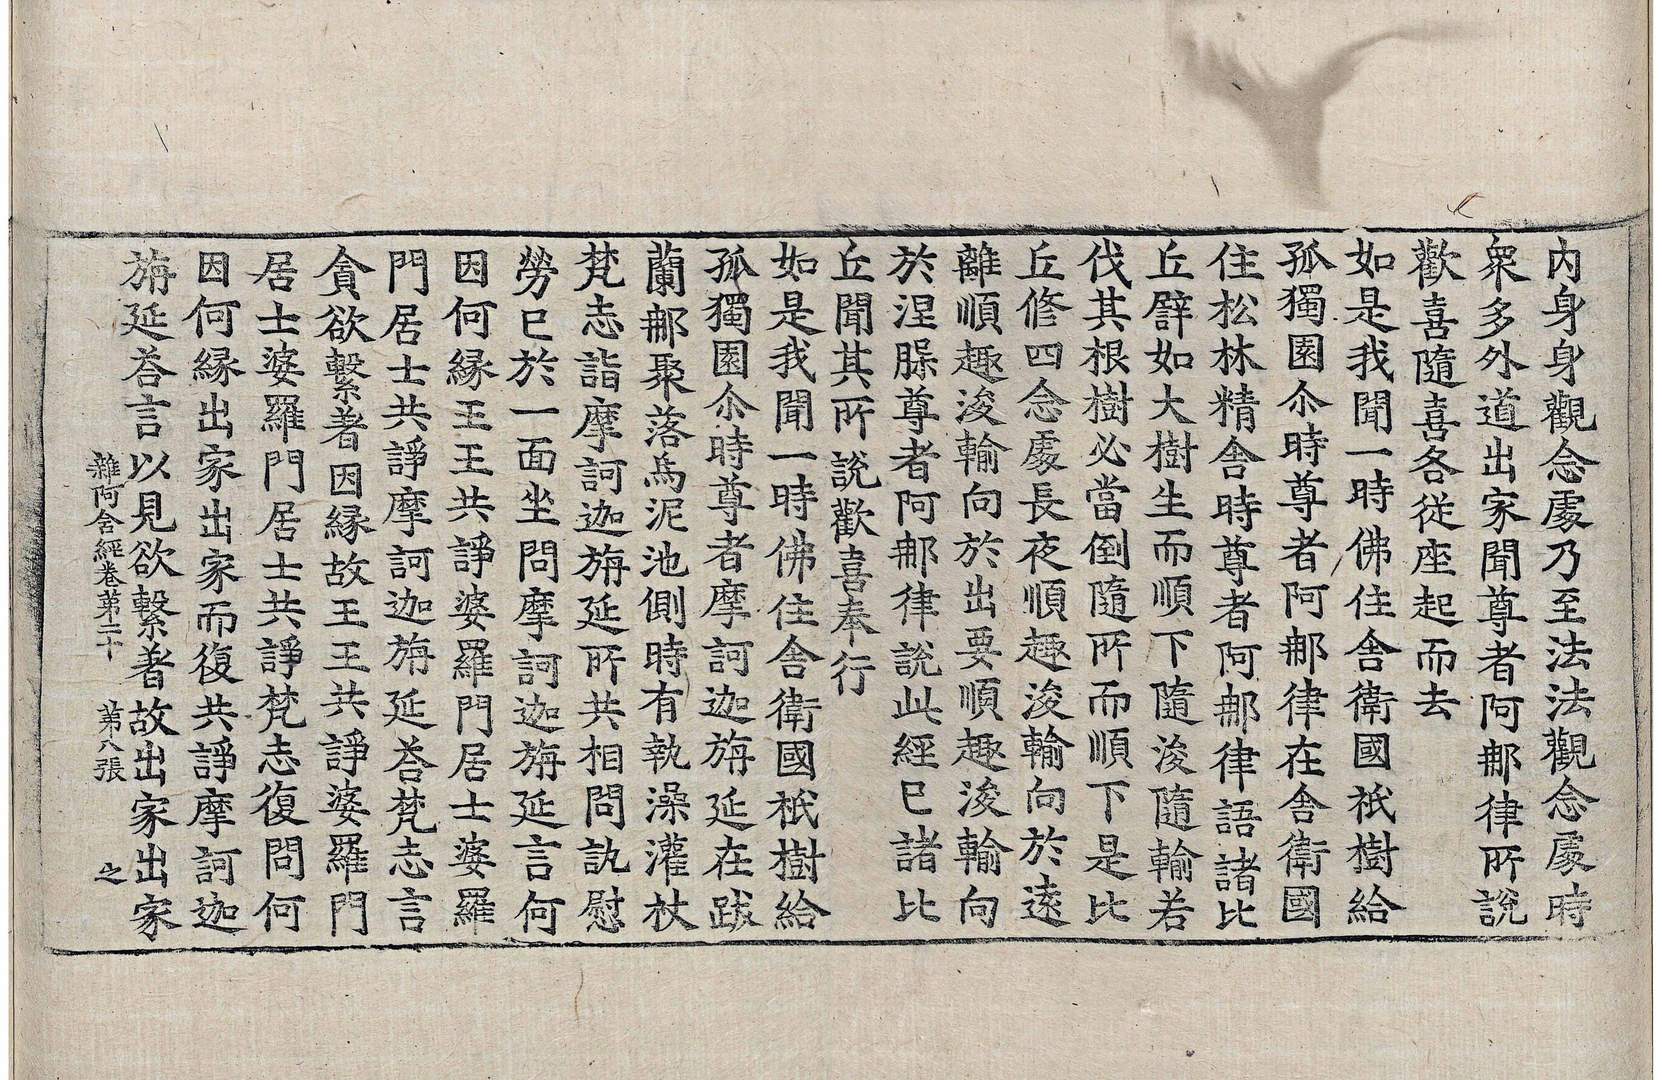 內身身觀念處乃至法法觀念處時
衆多外道出家聞尊者阿𨚗律所說
歡喜隨喜各從座起而去
如是我聞一時佛住舍衛國祇樹給
孤獨園尒時尊者阿𨚗律在舍衛國
住松林精舍時尊者阿𨚗律語諸比
丘譬如大樹生而順下隨浚隨輸若
伐其根樹必當倒隨所而順下是比
丘修四念處長夜順趣浚輸向於遠
離順趣浚輸向於出要順趣浚輸向
於涅槃尊者阿𨚗律說此經已諸比
丘聞其所說歡喜奉行
如是我聞一時佛住舍衛國祇樹給
孤獨園尒時尊者摩訶迦旃延在跋
蘭𨚗聚落烏泥池側時有執澡灌杖
梵志詣摩訶迦旃延所共相問訊慰
勞已於一面坐問摩訶迦旃延言何
因何緣王王共諍婆羅門居士婆羅
門居士共諍摩訶迦旃延荅梵志言
貪欲繫著因緣故王王共諍婆羅門
居士婆羅門居士共諍梵志復問何
因何緣出家出家而復共諍摩訶迦
旃延荅言以見欲繫著故出家出家
雜阿含經卷第二十 第八張 之